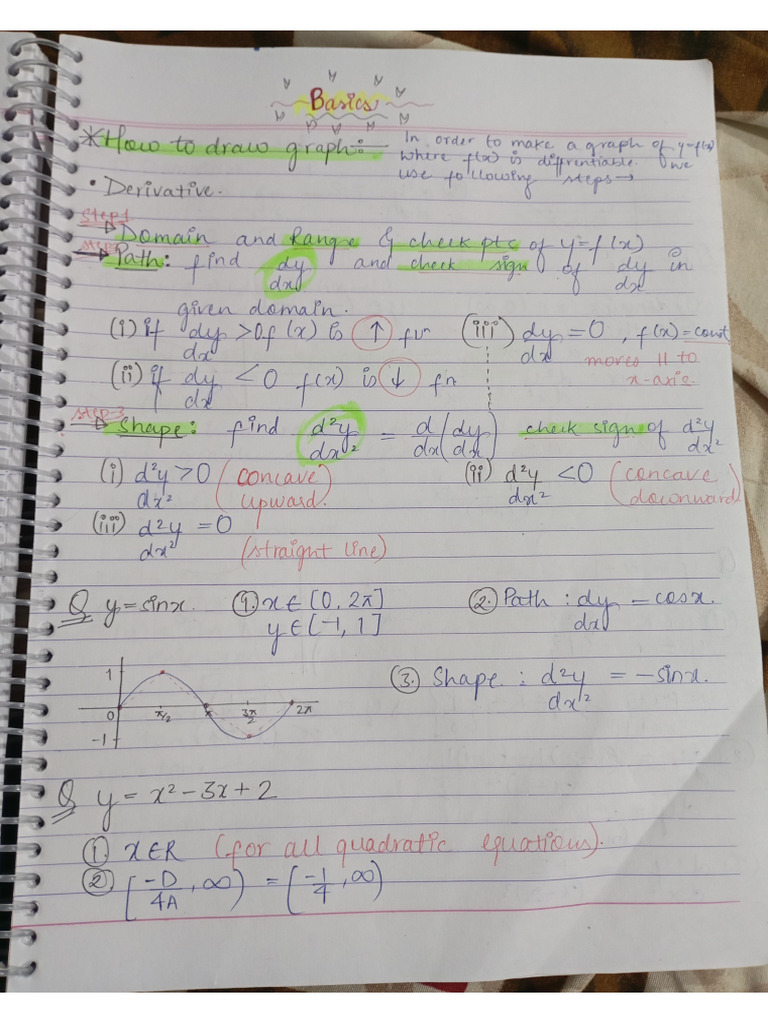 Basics
*How to draw graph:- In order to make a graph of y=f(x)
where f(x) is diffrentiable. we
use following steps→
• Derivative.
Step-1
→Domain and Range & check pts of y=f(x)
→Path: find dy/dx and check sign of dy/dx in
given domain.
(i) if dy/dx >0 f(x) is ↑ fn (iii) dy/dx =0 , f(x)=const
moves || to
x-axis.
(ii) if dy/dx <0 f(x) is ↓ fn
Step-3
→Shape: find d²y/dx² = d/dx(dy/dx) check sign of d²y/dx²
(i) d²y/dx² >0 (concave upward. (ii) d²y/dx² <0 (concave downward)
(iii) d²y/dx² =0
(straight line)
Q y=sinx. ①x∈[0, 2π] ②Path : dy/dx =cosx.
y∈[-1, 1]
③ Shape : d²y/dx² = -sinx.
1
0 π/2 π 3π/2 2π
-1
Q y = x²-3x+2
① x∈R (for all quadratic equations).
② [-D/4A, ∞) = [-1/4, ∞)